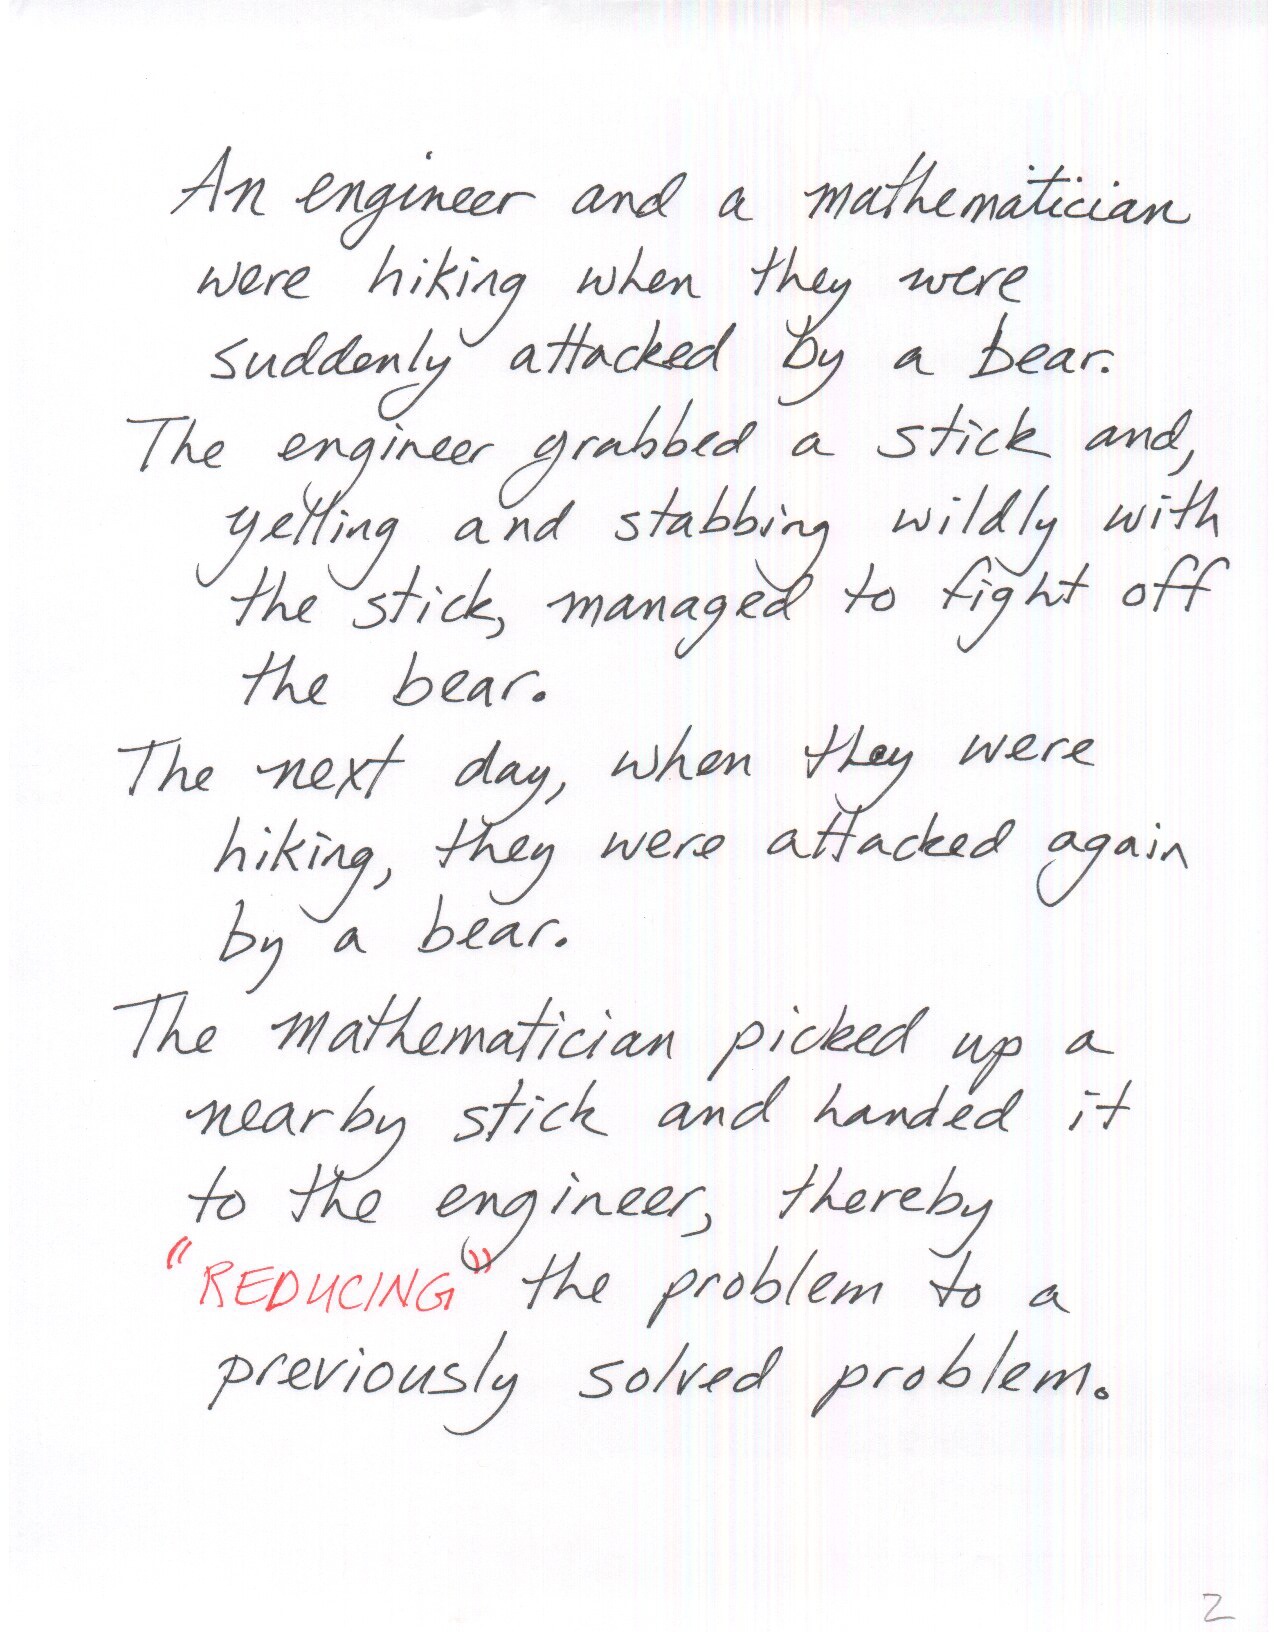 An engineer and a mathematician
were hiking when they were
suddenly attacked by a bear.
The engineer grabbed a stick and,
yelling and stabbing wildly with
the stick, managed to fight off
the bear.
The next day, when they were
hiking, they were attacked again
by a bear.
The mathematician picked up a
nearby stick and handed it
to the engineer, thereby
"REDUCING" the problem to a
previously solved problem.
2